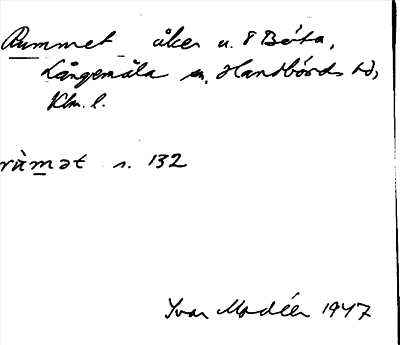 Rummet åker u. 8 Bóta,
Långemåla sn, Handbörds hd,
Klm. l.
rùmət s. 132
Ivar Modéer 1947